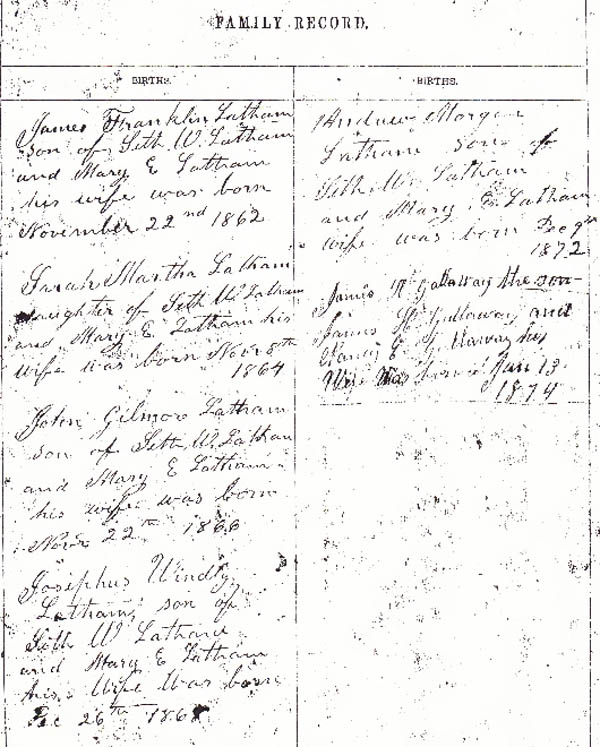 FAMILY RECORD.
BIRTHS.
James Franklin Latham
son of Seth W. Latham
and Mary E Latham
his wife was born
November 22nd 1862
Sarah Martha Latham
daughter of Seth W Latham
and Mary E Latham his
wife was born Novr 8th
1864
John Gilmore Latham
son of Seth W. Latham
and Mary E Latham
his wife was born
Novr 22th 1866
Josephus Windly
Latham, son of
Seth W Latham
and Mary E Latham
his Wife Was born
Dec 26th 1868
BIRTHS.
Andrew Morgan
Latham son of
Seth W. Latham
and Mary E. Latham
wife was born Dec 9th
1872
James Gallaway the son
James Gallaway and
Nancy E Gallaway his
Wife Was born Jan 13
1874